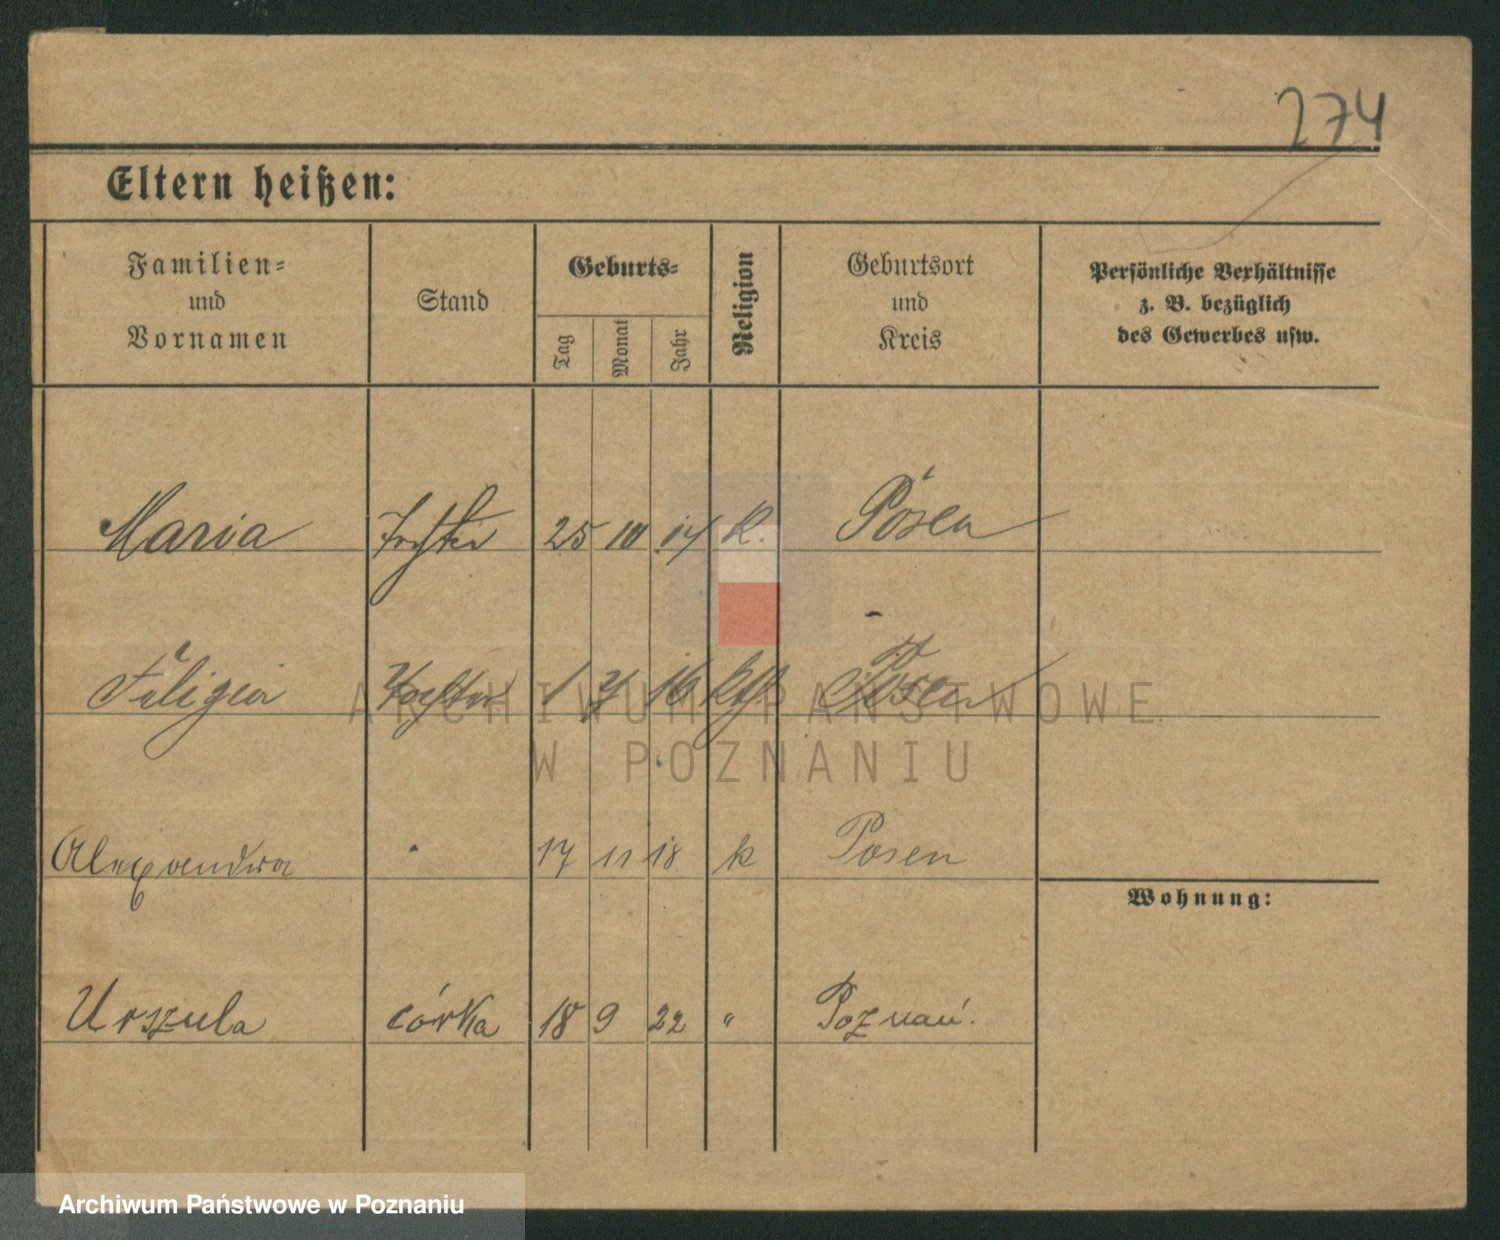 274
Eltern heißen:
Familien=
und
Vornamen
Stand
Geburts=
Tag
Monat
Jahr
Religion
Geburtsort
und
Kreis
Persönliche Verhältnisse
z. B. bezüglich
des Gewerbes usw.
Maria Tochter 25 10 14 K. Posen
Tochter 1 16 kth Posen
ARCHIWUM PAŃSTWOWE
W POZNANIU
Alexandra 17 11 18 k Posen
Wohnung:
Urszula córka 18 9 22 " Poznań.
Archiwum Państwowe w Poznaniu